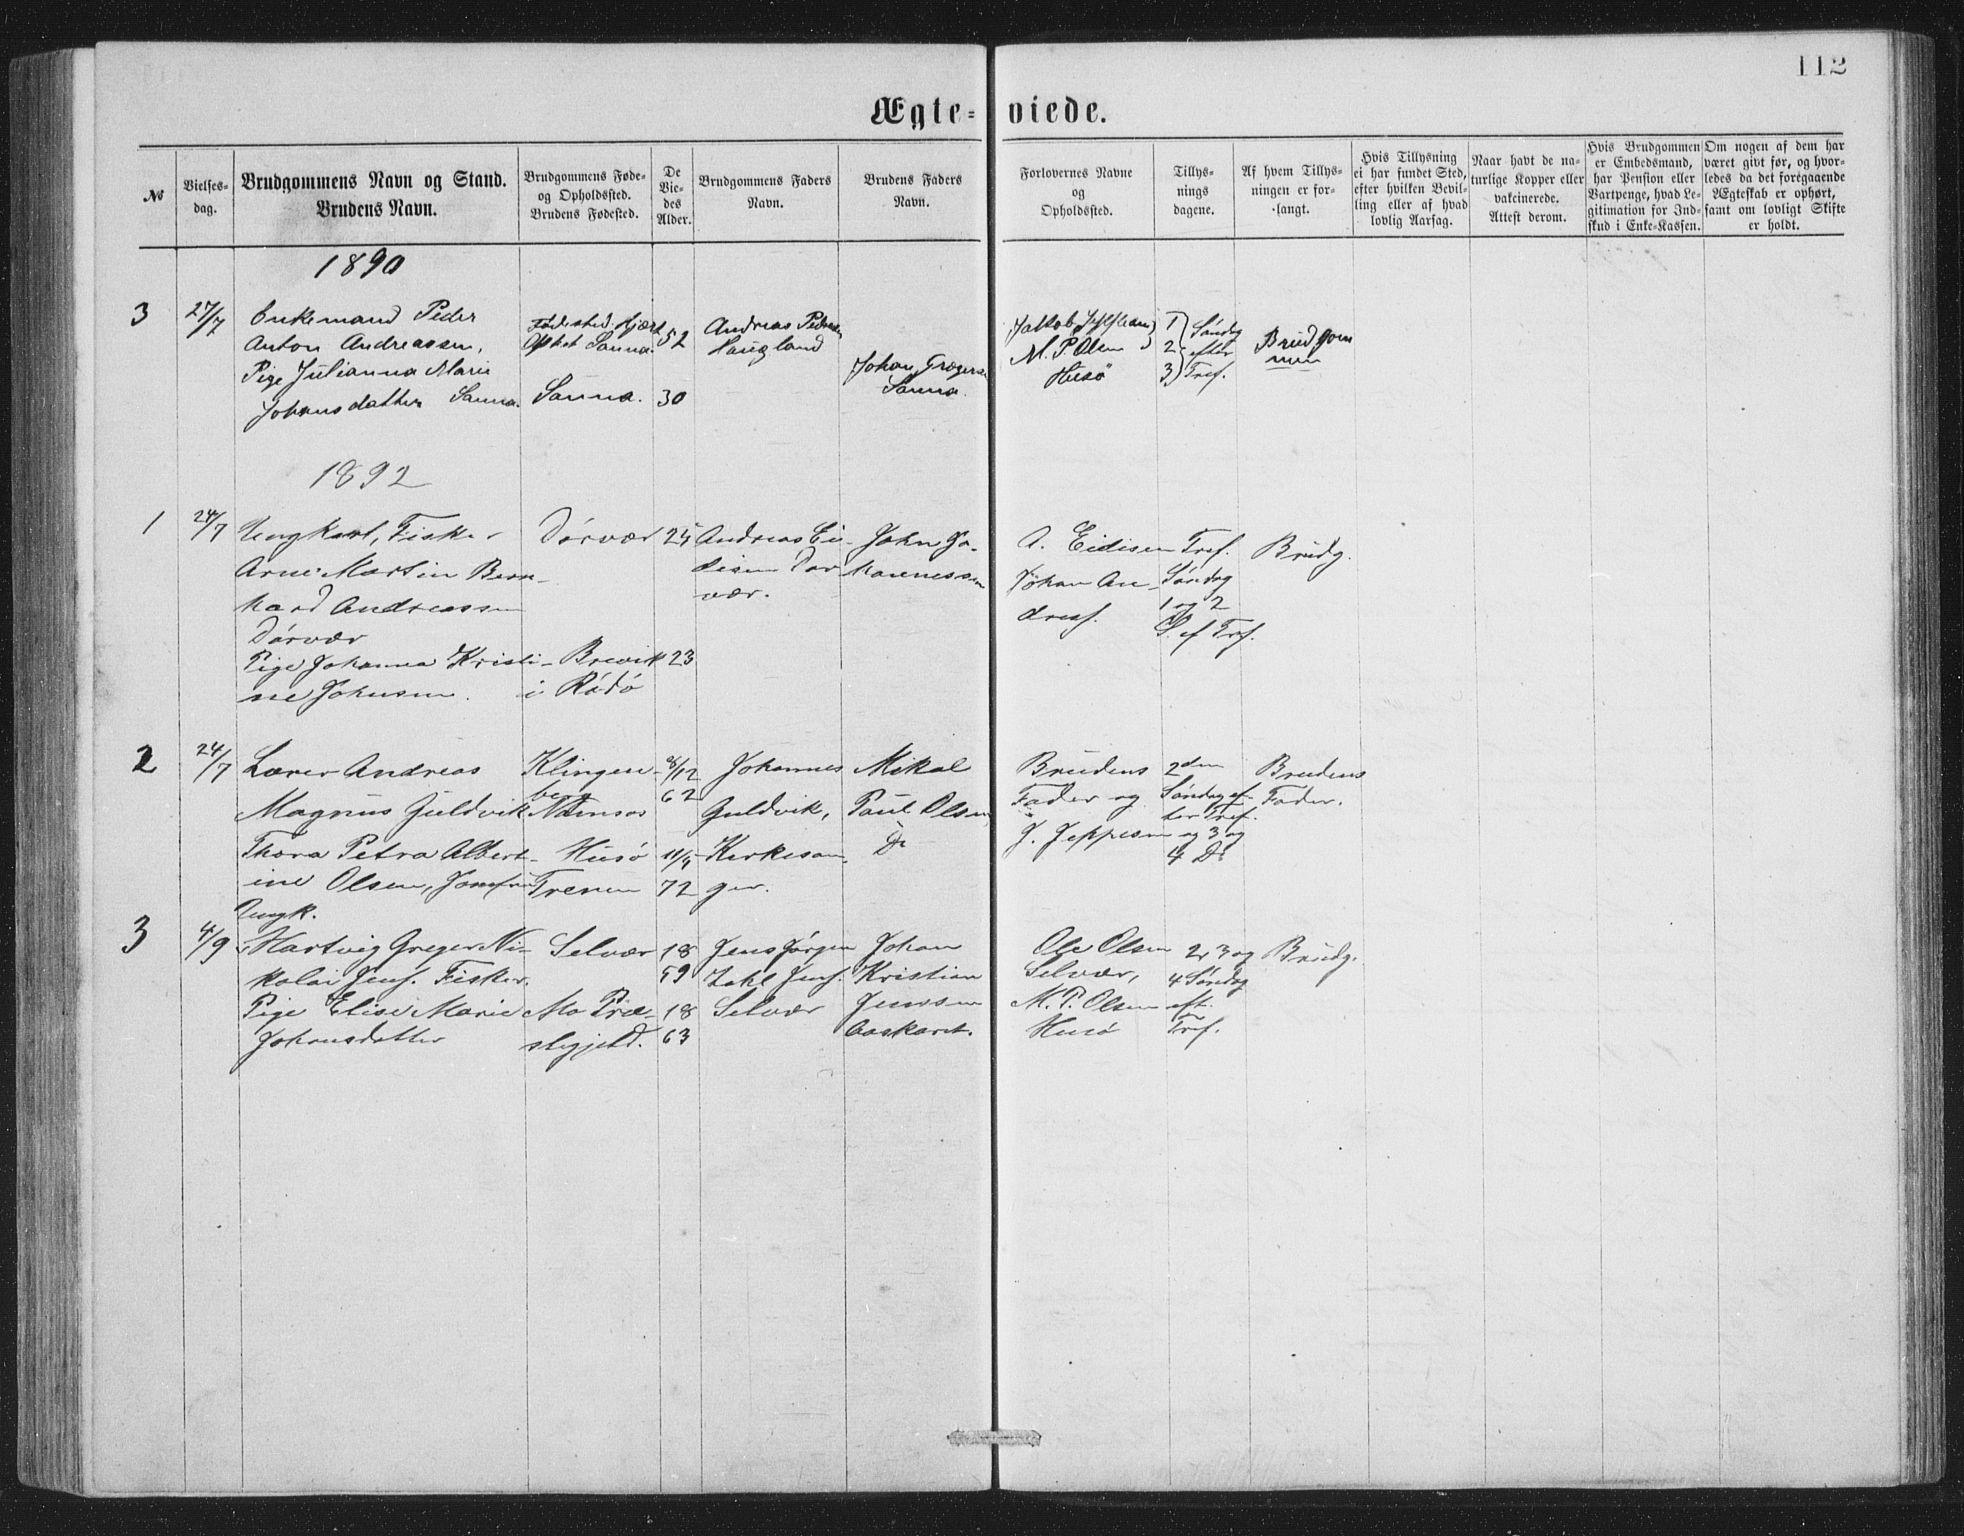 112
Ægte-viede.
№
Vielses-
dag.
Brudgommens Navn og Stand.
Brudens Navn.
Brudgommens Føde-
og Opholdssted.
Brudens Fødested.
De
Vie-
des
Alder.
Brudgommens Faders
Navn.
Brudens Faders
Navn.
Forlovernes Navne
og
Opholdssted.
Tillys-
nings
dagene.
Af hvem Tillys-
ningen er for-
langt.
Hvis Tillysning
ei har fundet Sted,
efter hvilken Bevil-
ling eller af hvad
lovlig Aarsag.
Naar havt de na-
turlige Kopper eller
vakcinerede.
Attest derom.
Hvis Brudgommen
er Embedsmand,
har Pension eller
Vartpenge, hvad Le-
gitimation for Ind-
skud i Enke-Kassen.
Om nogen af dem har
været givt før, og hvor-
ledes da det foregaaende
Ægteskab er ophørt,
samt om lovligt Skifte
er holdt.
1890
3
27/7
Enkemand Peder
Anton Andreassen,
Pige Julianna Marie
Johansdatter Sanna.
Fødested
Sanna.
Sanna.
52
30
Andreas Peders
Haugland
Johan
Sanna.
Jakob
M. P. Olsen
Husö
1
2
3
Söndag
efter
Tref.
Brudgom
men
1892
1
24/7
Ungkarl, Fisker
Arne Martin Bern-
hard Andreassen
Dörvær
Pige Johanna Kristi-
ne Johnsen.
Dörvær
Brevik
i Rödö
25
23
Andreas Ei-
disen Dör
vær.
John Jo-
hannessen
A. Eidisen
Johan An-
dreasf.
Tref.
Söndag
1 og 2
S. ef Trf.
Brudg.
2
24/7
Lærer Andreas
Magnus Guldvik
Thora Petra Albert-
ine Olsen, Jomfru
Klingen-
berg
Namsos
Husö
Trenen
8/12
62
11/4
72
Johannes
Guldvik,
Kirkesan-
ger.
Mikal
Paul Olsen,
Do
Brudens
Fader og
J. Jeppesen
2den
Söndag ef-
ter Tref.
og 3 og
4 Do
Brudens
Fader.
3
4/9
Ungk.
Hartvig Greger Ni-
kolai Jensf. Fisker.
Pige Elise Marie
Johansdatter
Selvær
Mo Præ-
stegjeld.
18
59
18
63
Jens Jörgen
Zahl Jensf.
Selvær
Johan
Kristian
Jensen
Ole Olsen
Selvær,
M. P. Olsen
Husö
2, 3 og
4 Söndag
eft.
Tref.
Brudg.